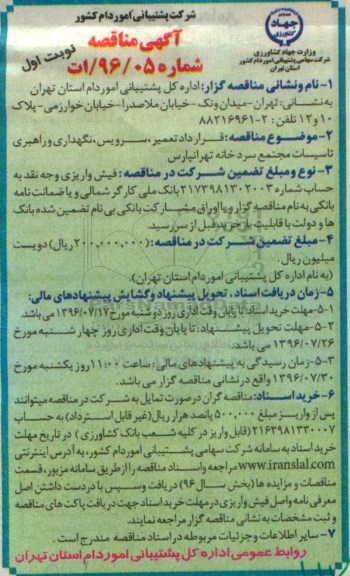 شرکت پشتیبانی امور دام کشور
جهاد
وزارت جهاد کشاورزی
شرکت سهامی پشتیبانی امور دام کشور
استان تهران
آگهی مناقصه
شماره ۹۶/۰۵/۱ت
نوبت اول
۱- نام ونشانی مناقصه گزار: اداره کل پشتیبانی امور دام استان تهران
به نشانی: تهران-میدان ونک-خیابان ملاصدرا-خیابان خوارزمی-پلاک
۱۰ و ۱۲ تلفن: ۲-۸۸۲۱۶۹۶۱
۲-موضوع مناقصه: قرارداد تعمیر، سرویس، نگهداری و راهبری
تاسیسات مجتمع سردخانه تهرانپارس
۳- نوع ومبلغ تضمین شرکت در مناقصه: فیش واریزی وجه نقد به
حساب شماره ۲۱۷۳۹۸۱۳۰۲۰۰۳ بانک ملی کارگر شمالی و یا ضمانت نامه
بانکی به نام مناقصه گزار و یا اوراق مشارکت بانکی بی نام تضمین شده بانک
ها و دولت با قابلیت بازخرید قبل از سررسید.
۴- مبلغ تضمین شرکت در مناقصه: (۲۰۰,۰۰۰,۰۰۰ ریال) دویست
میلیون ریال.
(به نام اداره کل پشتیبانی امور دام استان تهران).
۵-زمان دریافت اسناد، تحویل پیشنهاد وگشایش پیشنهادهای مالی:
۵-۱-مهلت خرید اسناد تا پایان وقت اداری روز دوشنبه مورخ ۱۳۹۶/۰۷/۱۷ می باشد.
۵-۲- مهلت تحویل پیشنهاد: تا پایان وقت اداری روز چهارشنبه مورخ
۱۳۹۶/۰۷/۲۶ می باشد.
۵-۳-زمان رسیدگی به پیشنهادهای مالی: ساعت ۱۱:۰۰ روز یکشنبه مورخ
۱۳۹۶/۰۷/۳۰ واقع در نشانی مناقصه گزار می باشد.
۶-خرید اسناد: مناقصه گران در صورت تمایل به شرکت در مناقصه میتوانند
پس از واریز مبلغ ۵۰۰,۰۰۰ پانصد هزار ریال(غیر قابل استرداد) به حساب
۲۱۶۳۹۸۱۳۳۰۰۰۷ (قابل واریز در کلیه شعب بانک کشاورزی) در تاریخ مهلت
خرید اسناد به سامانه شرکت سهامی پشتیبانی امور دام کشور، به آدرس اینترنتی
www.iranslal.com مراجعه واسناد مناقصه را از طریق سامانه مزبور، قسمت
مناقصات و مزایده ها (بخش سال ۹۶) دریافت وسپس با در دست داشتن اصل
معرفی نامه واصل فیش واریزی در مهلت خرید اسناد جهت دریافت پاکت های مناقصه
و ثبت مشخصات به نشانی مناقصه گزار مراجعه نمایند.
۷- سایر اطلاعات و جزئیات مربوطه در اسناد مناقصه مندرج است.
روابط عمومی اداره کل پشتیبانی امور دام استان تهران